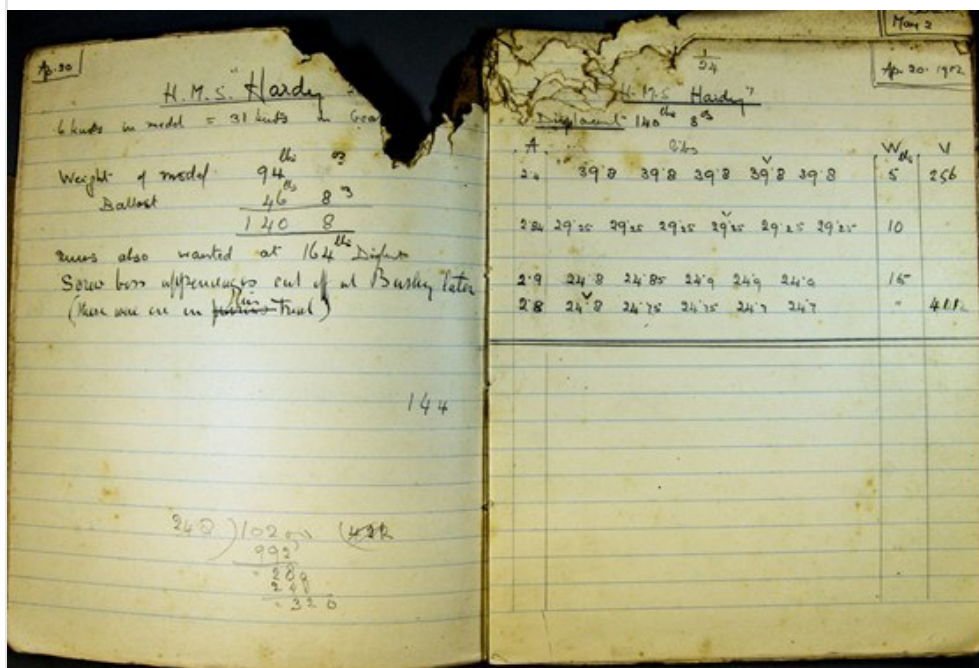 Ap. 20
H.M.S. "Hardy
6 knots in model = 31 knots in
Weight of model 94 lbs oz
Ballast 46 lbs 8 oz
140 8
runs also wanted at 164 lbs
Screw boss appendages cut off at Bushy later
(These were on in this Trial)
144
248 ) 102
992
28
248
320
May 2
1/24
Ap. 20. 1902
H.M.S. Hardy"
Displacmt 140 lbs 8 oz
A W lbs V
39.8 39.8 39.8 39.8 39.8 5 256
29.25 29.25 29.25 29.25 29.25 29.25 10
2.9 24.8 24.85 24.9 24.9 24.9 15
2.8 24.8 24.75 24.75 24.7 24.7 "